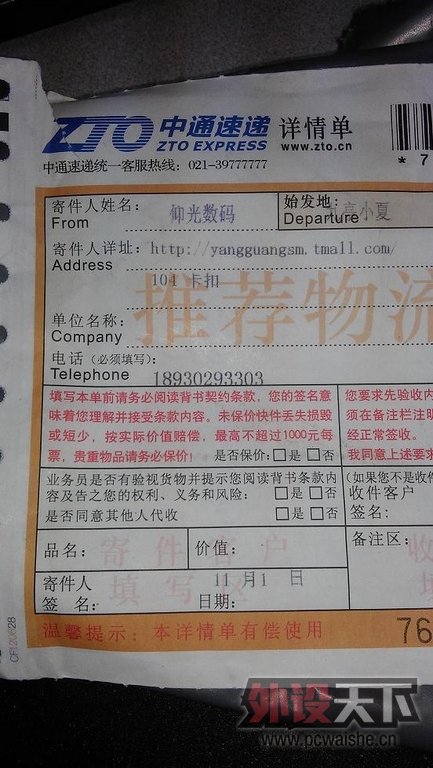 ZTO 中通速递 详情单
ZTO EXPRESS www.zto.cn
中通速递统一客服热线：021-39777777
* 7
寄件人姓名： 仰光数码 始发地： 高小夏
From Departure
寄件人详址： http://yangguangsm.tmall.com/
Address
104 卡扣
推荐物流
单位名称：
Company
电话（必须填写）：
Telephone 18930293303
填写本单前请务必阅读背书契约条款，您的签名意
味着您理解并接受条款内容。未保价快件丢失损毁
或短少，按实际价值赔偿，最高不超过1000元每
票，贵重物品请务必保价！ 是否保价：□是 □否
您要求先验收内
须在备注栏注明
经正常签收。
我同意上述要求
业务员是否有验视货物并提示您阅读背书条款内
容及告之您的权利、义务和风险：□是 □否
是否同意其他人代收 □是 □否
(如果您不是收件
收件客户
签名：
品名： 价值： 备注区：
寄件客户
填写区
收
寄件人
签 名： 日期： 11 月1 日
温馨提示：本详情单有偿使用 76
CR120628
外设天下
www.pcwaishe.cn